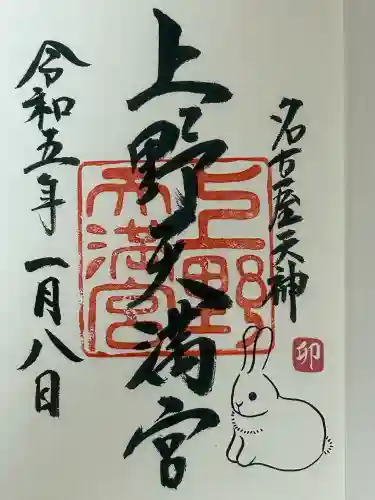 名古屋天神
上野天満宮
令和五年一月八日
上野
天満宮
卯